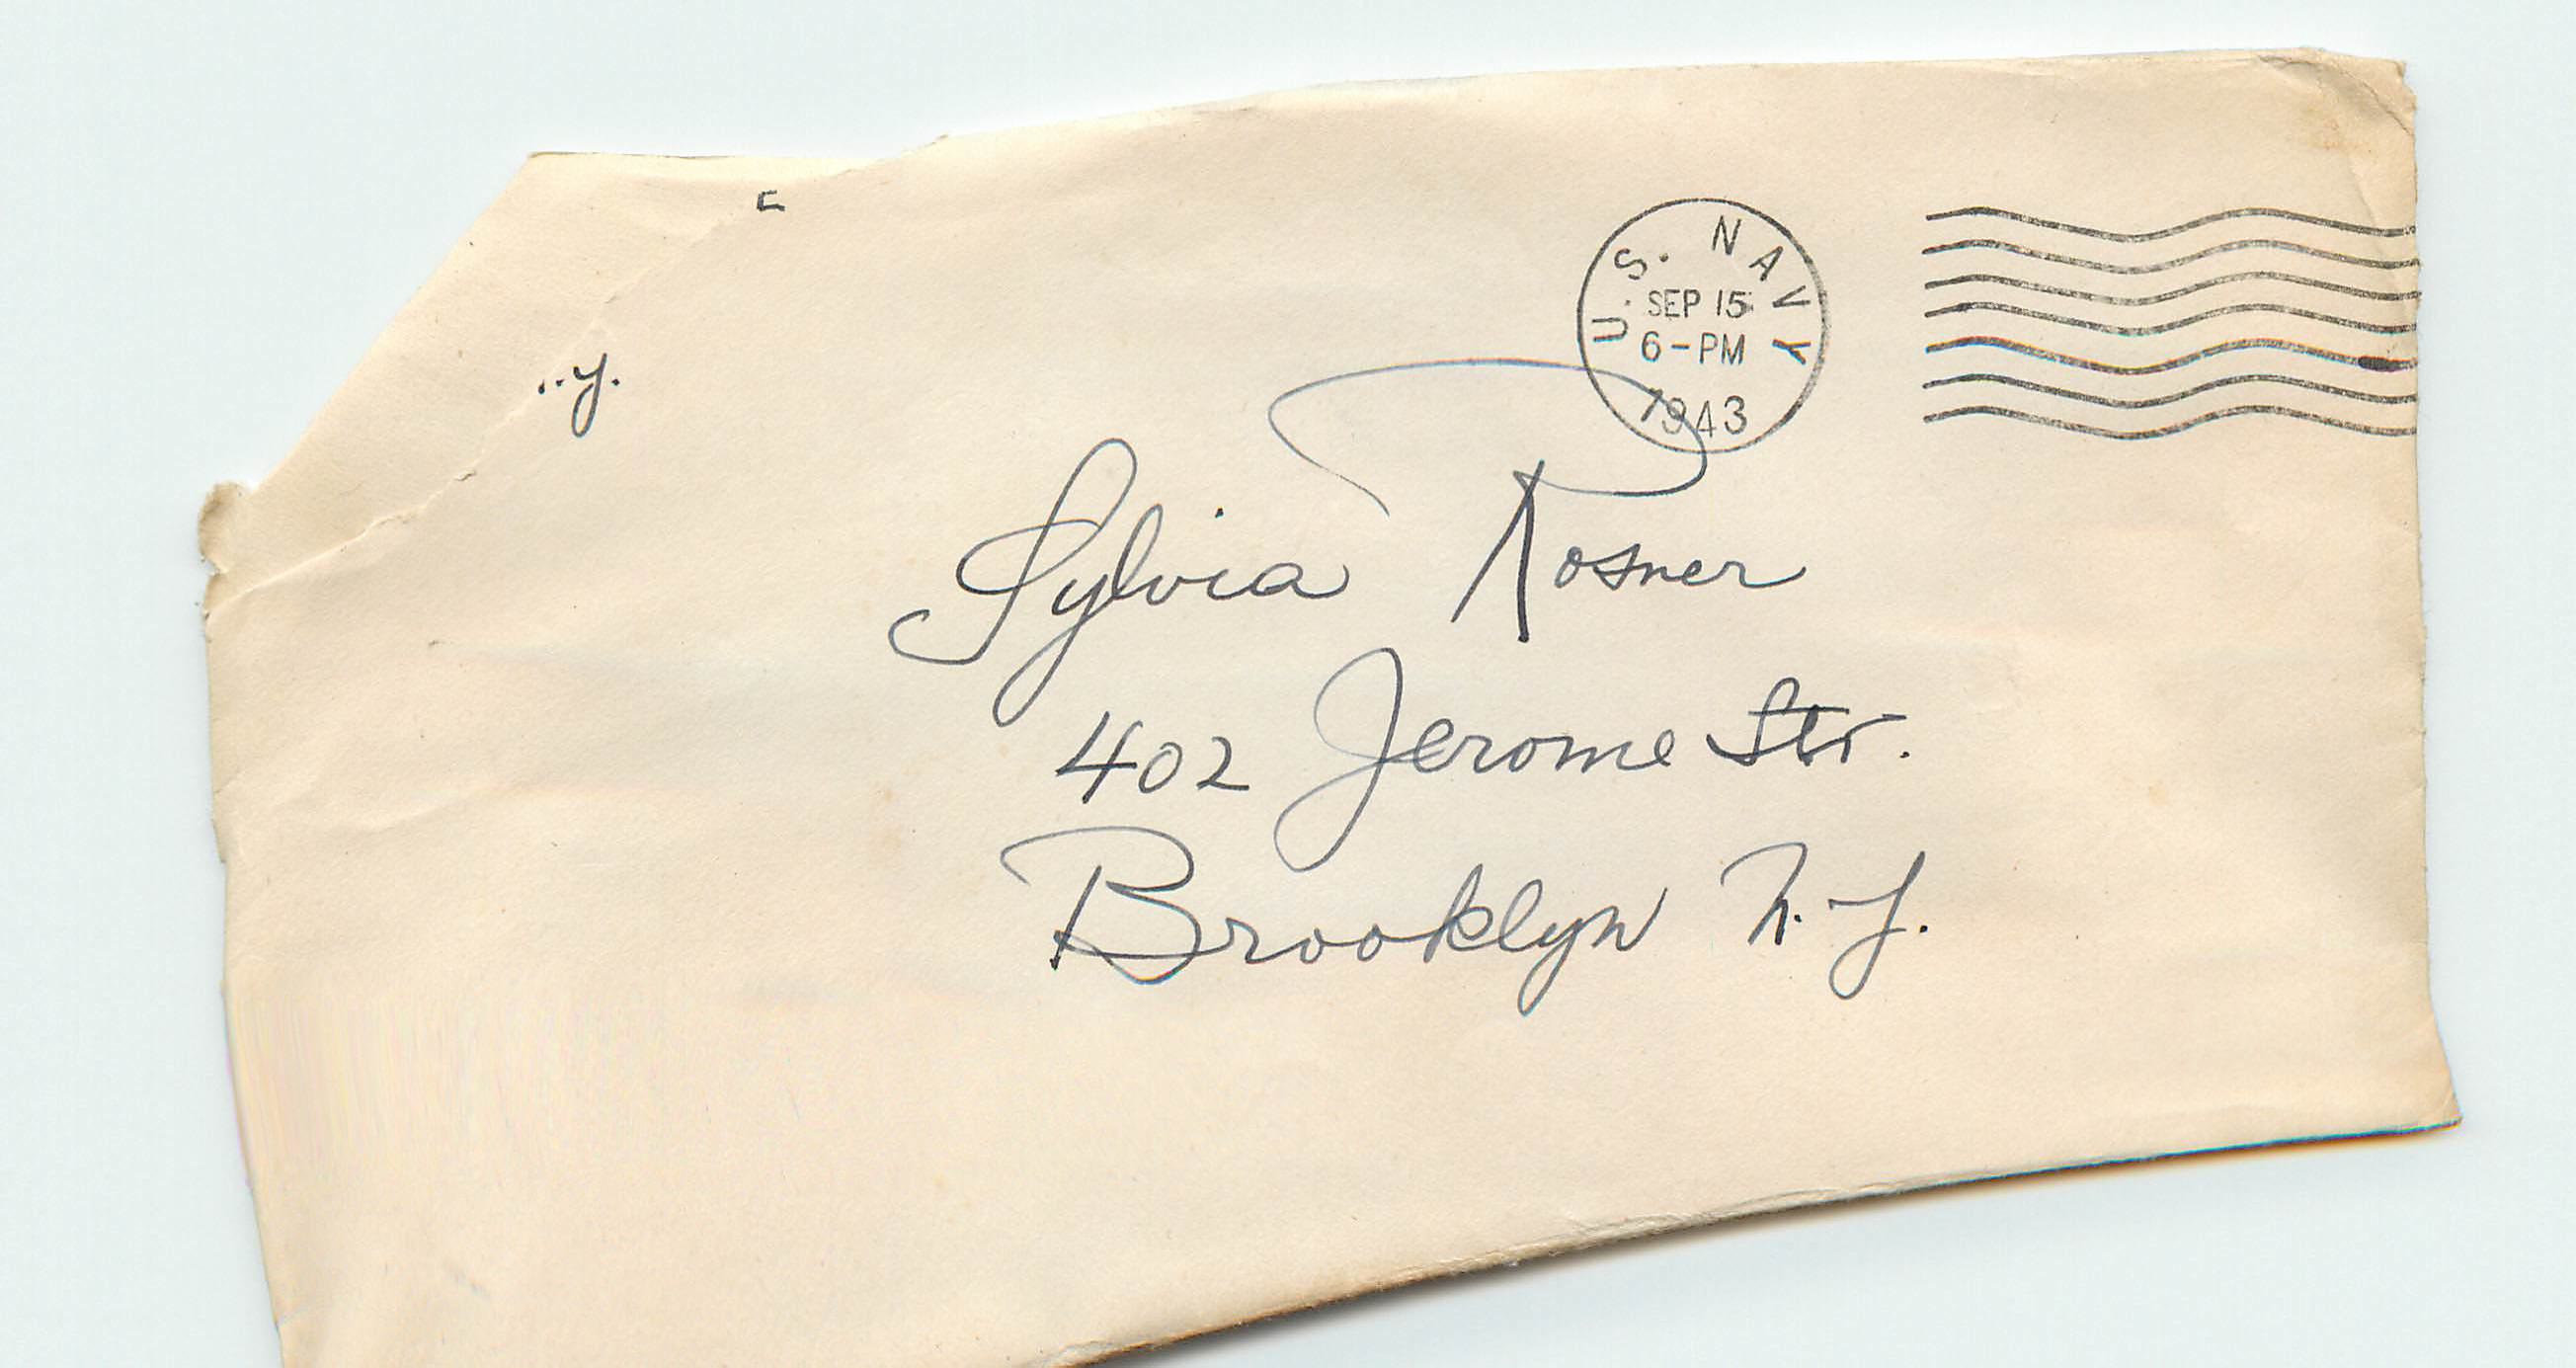 U.S. NAVY
SEP 15
6-PM
1943
Sylvia Rosner
402 Jerome Str.
Brooklyn N.Y.